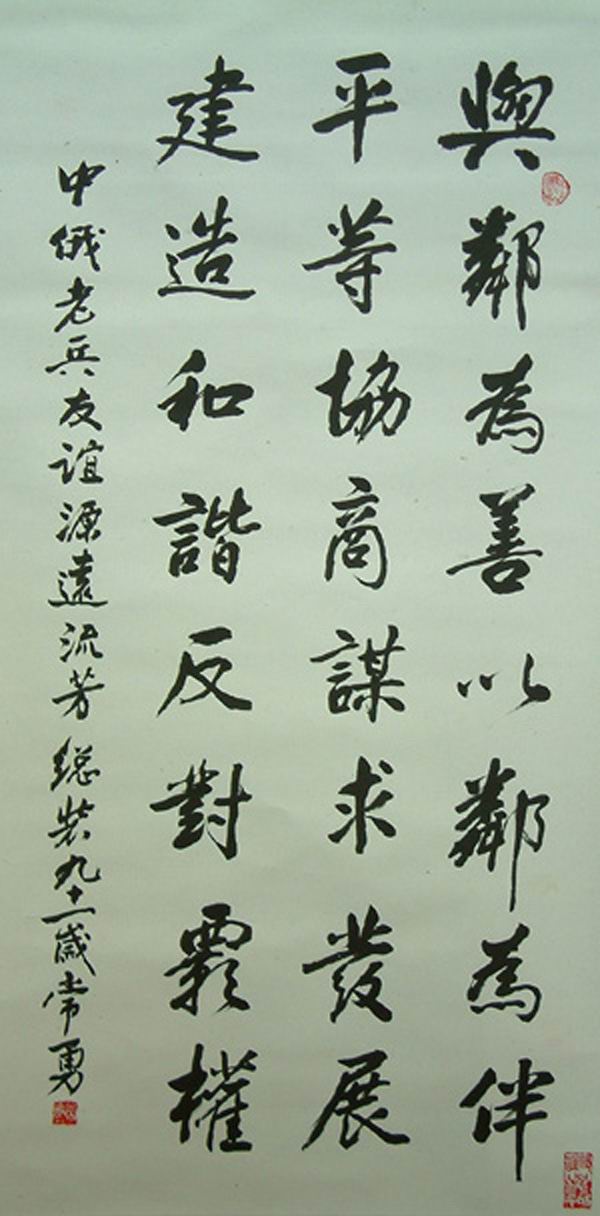 與鄰為善以鄰為伴
平等協商謀求發展
建造和諧反對霸權
中俄老兵友誼源遠流芳 總裝九十一歲常勇